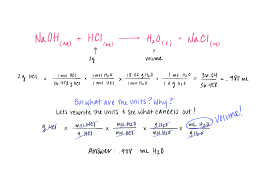 NaOH (aq) + HCl (aq) → H₂O (l) + NaCl (aq)
2g volume
2g HCl × 1 mol HCl / 36.458 g HCl × 1 mol H₂O / 1 mol HCl × 18.02 g H₂O / 1 mol H₂O × 1 mL H₂O / 1.0 g H₂O = 36.04 / 36.458 = .988 mL
But what are the units? Why?
Lets rewrite the units & see what cancels out!
g HCl × mol HCl / g HCl × mol H₂O / mol HCl × g H₂O / mol H₂O × mL H₂O / g H₂O volume!
Answer: .988 mL H₂O